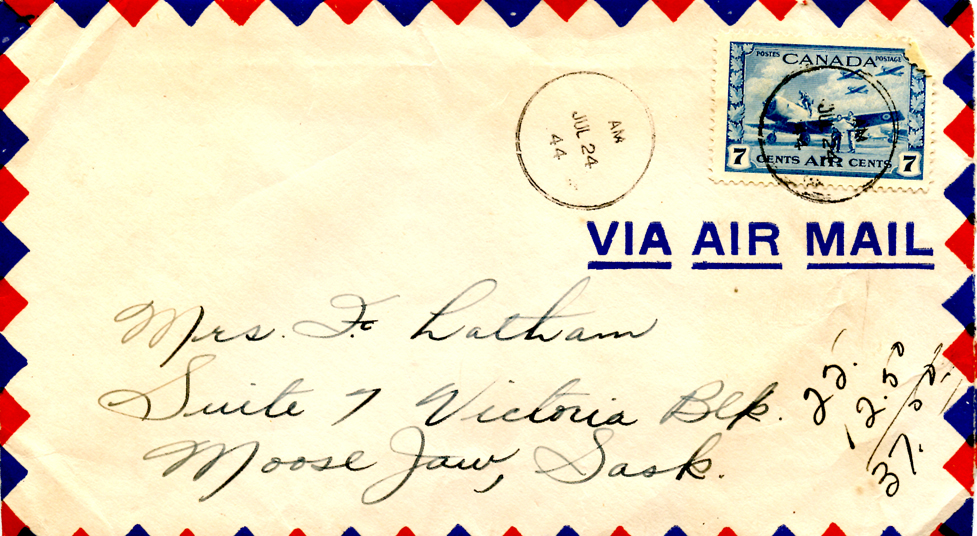 POSTES CANADA POSTAGE
7 CENTS AIR CENTS 7
AM
JUL 24
44
AM
JUL 24
VIA AIR MAIL
Mrs. F. Latham
Suite 7 Victoria Blk.
Moose Jaw, Sask.
25.
12.50
37.